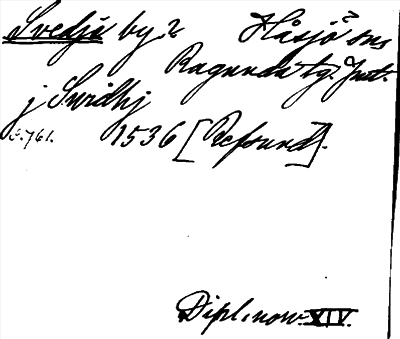 Svedje by 2 Håsjö sn
Ragunda tg. Jmtl.
j Swidhj
s. 761. 1536 [Refsund].
Dipl. norv. XIV.